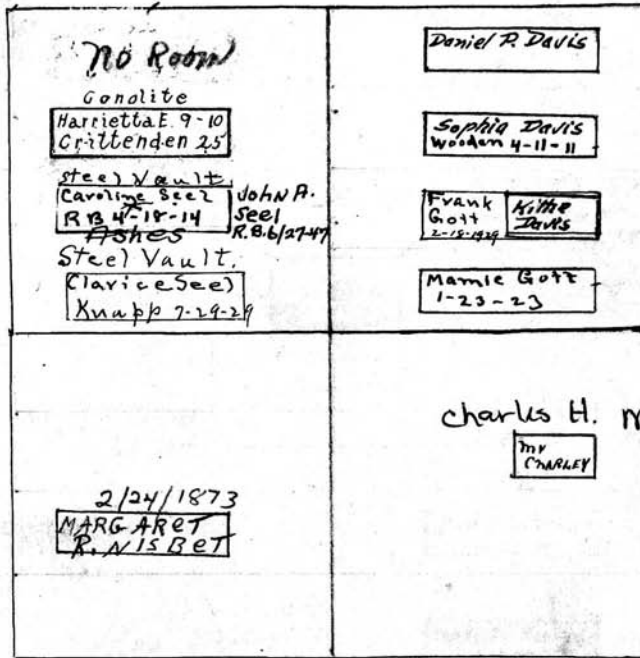 No Room
Conolite
Harrietta E. 9-10
Crittenden 25
Steel Vault
Caroline Seel
R B 4-18-14
John A.
Seel
R.B. 6/27-47
Ashes
Steel Vault.
Clarice Seel
Knapp 7-29-29
Daniel P. Davis
Sophia Davis
Wooden 4-11-11
Frank
Gott
2-18-1929
Kittie
Davis
Mamie Gott
1-23-23
2/24/1873
MARGARET
R. NISBET
Charles H.
Mr
CHARLEY